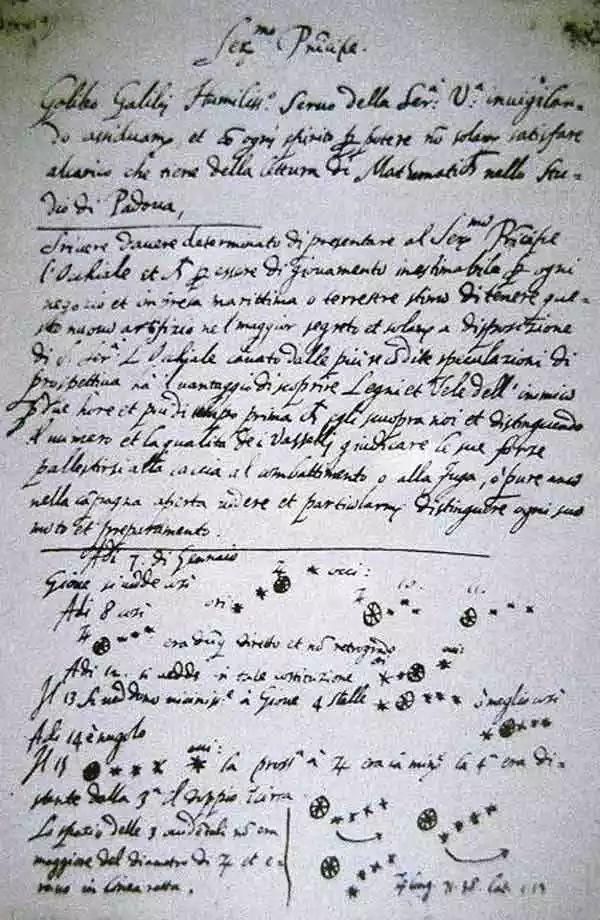 Ser.mo Principe.
Galileo Galilei Humiliss.o Servo della Ser.a V.a invigilan-
do assiduam.te, et ogni spirito potere nō solam.te satisfare
alcarico che tiene della lettura di Mathematiche nello Stu-
dio di Padova,
Scrivere davere determinato di presentare al Ser.mo Principe
l'Occhiale et essere di giovamento inestimabile ogni
negozio et impresa marittima o terrestre stimo di tenere que-
sto nuovo artifizio nel maggior segreto et solam.te a disposizione
di S. Ser.a L'Occhiale cavato dalle più recōdite speculazioni di
prospettiva hà l'vantaggio di scoprire Legni et Vele dell'inimico
due hore et più di tempo prima egli scuopra noi et distinguendo
il numero et la qualità de i Vasselli giudicare le sue forze
pallestirsi alla caccia al combattimento o alla fuga, o pure anco
nella cāpagna aperta vedere et particularm.te distinguere ogni suo
moto et preparamento.
Adi 7. di Gennaio
Gioue si uedde cosi
Adi 8 cosi
era dūq. diretto et nō retrogrado
Adi 12. si uedde in tale costituzione
Il 13 si ueddono à Gioue 4 stelle ò meglio cosi
Adi 14 è nugolo
Il 15 la pross.a à ♃ era la min.e la 4.a era di-
stante dalla 3.a il doppio Circa
Lo spatio delle 3 nō era
maggiore del diametro di ♃ et e-
rano in linea retta.
♃ long. 71.38 Lat. 1.13